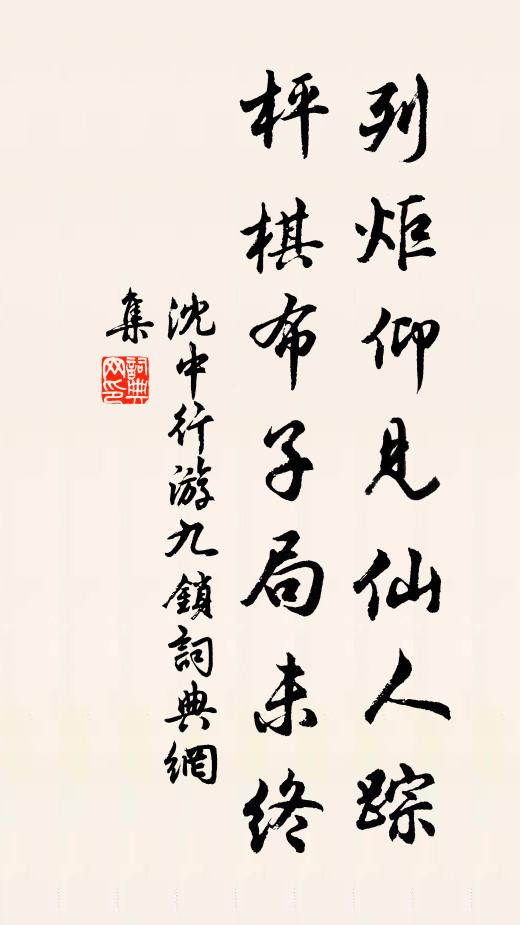 列炬仰见仙人踪
枰棋布子局未终
沈中行游九鎖詞典網
集
詞典网印